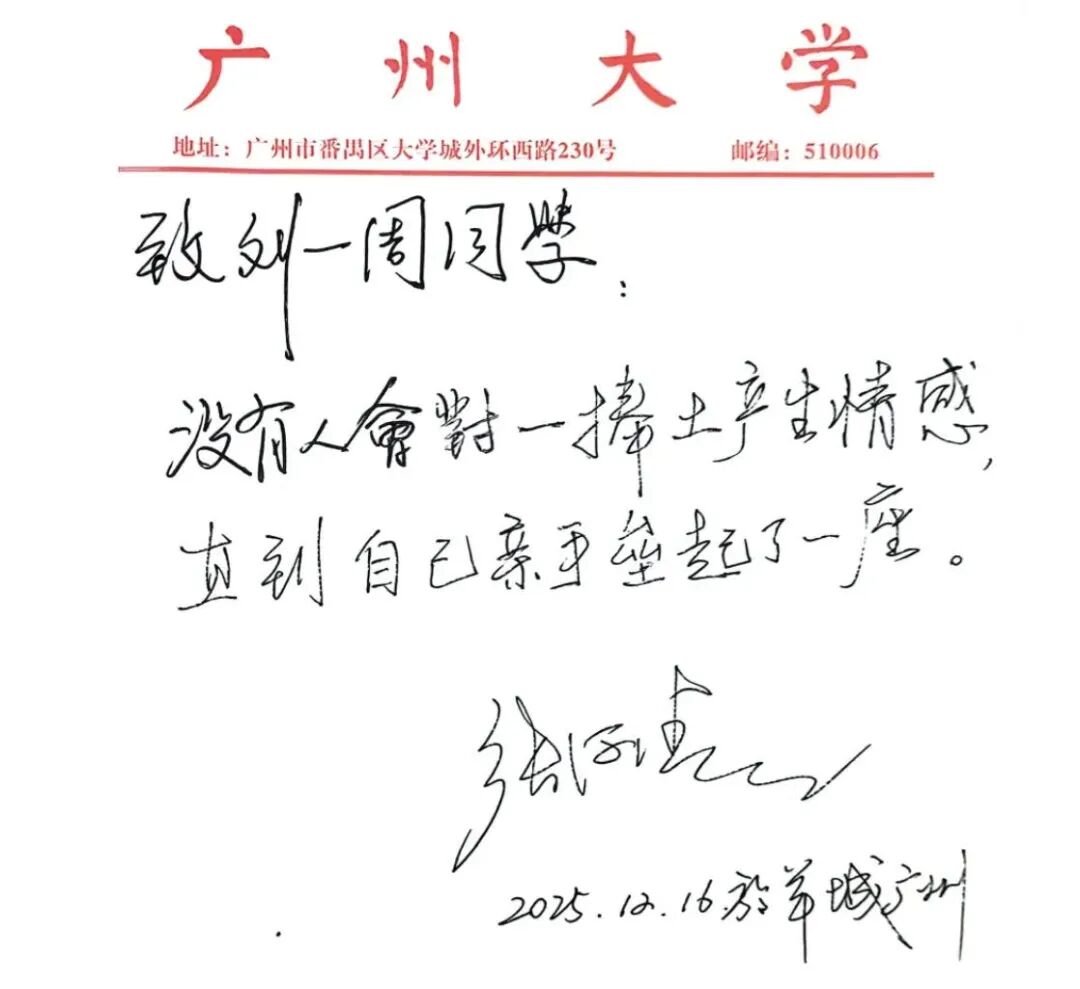 广州大学
地址：广州市番禺区大学城外环西路230号 邮编：510006
致刘一周同学：
没有人會對一捧土产生情感，
直到自己亲手垒起了一座。
张
2025.12.16於羊城广州